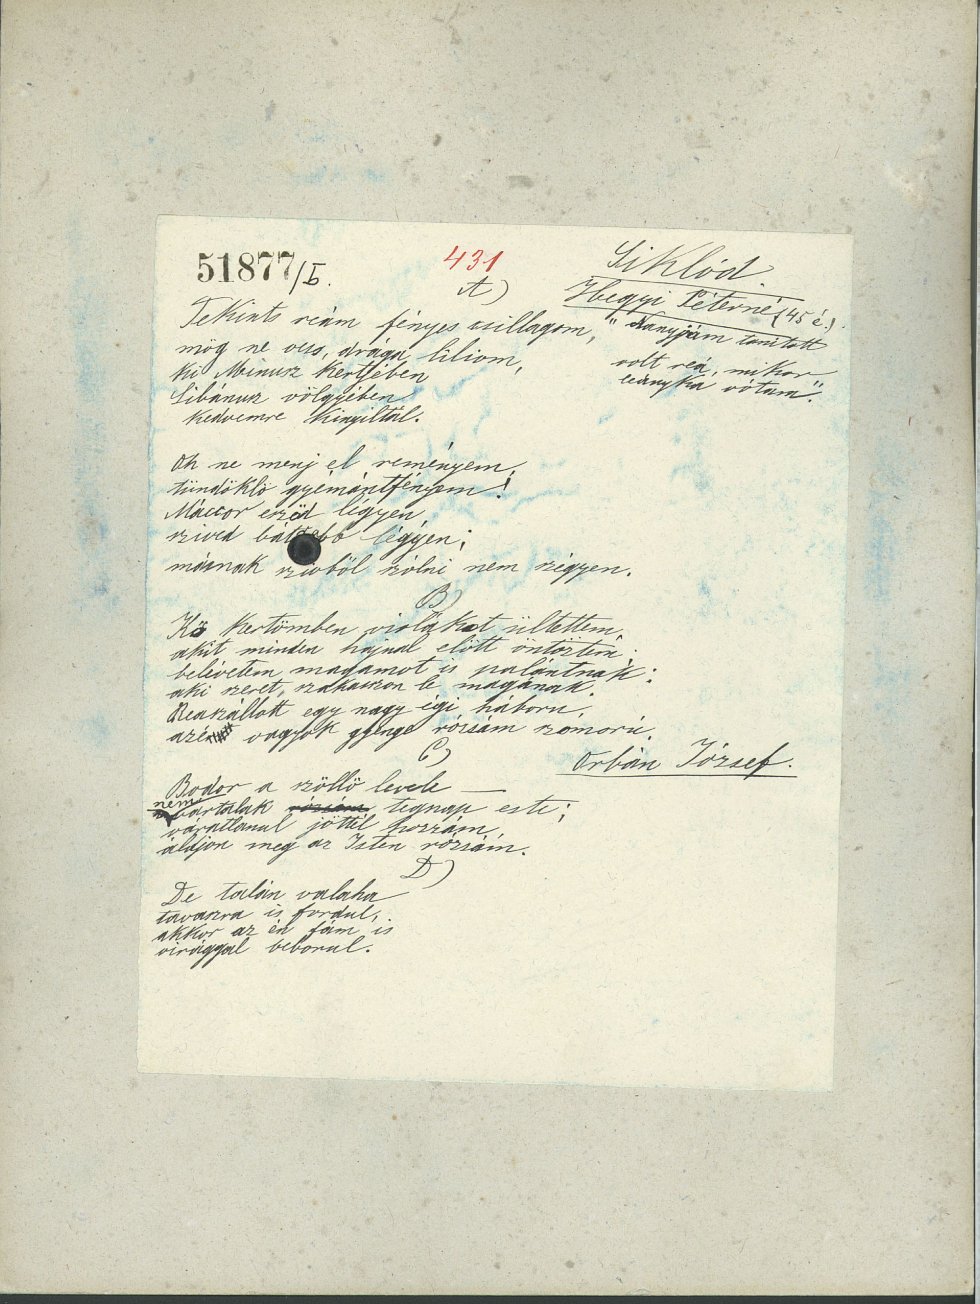 51877/b.
431
Siklód.
A)
Hegyi Péterné (45 é.)
Tekints reám fényes csillagom,
"Nanyjám tanított
mög ne vess, drága liliom,
volt reá, mikor
ki Minusz kertjében
leányka vótam".
Libánusz völgyében
kedvemre kinyiltál.
Oh ne menj el reményem,
tündöklö gyémántfényem!
Máccor eszöd légyen
szived bátrabb légyen;
másnak szivböl szólni nem szégyen.
B)
Kis kertömben violákot ültettem,
akit minden hajnal elött öntöztem;
belévetem magamot is palántnak;
aki szeret, szakasszon le magának.
Reaszállott egy nagy égi háború,
azér vagyok gyenge rózsám szomorú.
C)
Orbán József.
Bodor a szöllö levele —
nem vártalak rózsám tegnap este;
váratlanul jöttél hozzám,
áldjon meg az Isten rózsám.
D)
De talán valaha
tavaszra is fordul,
akkor az én fám is
virággyal beborul.